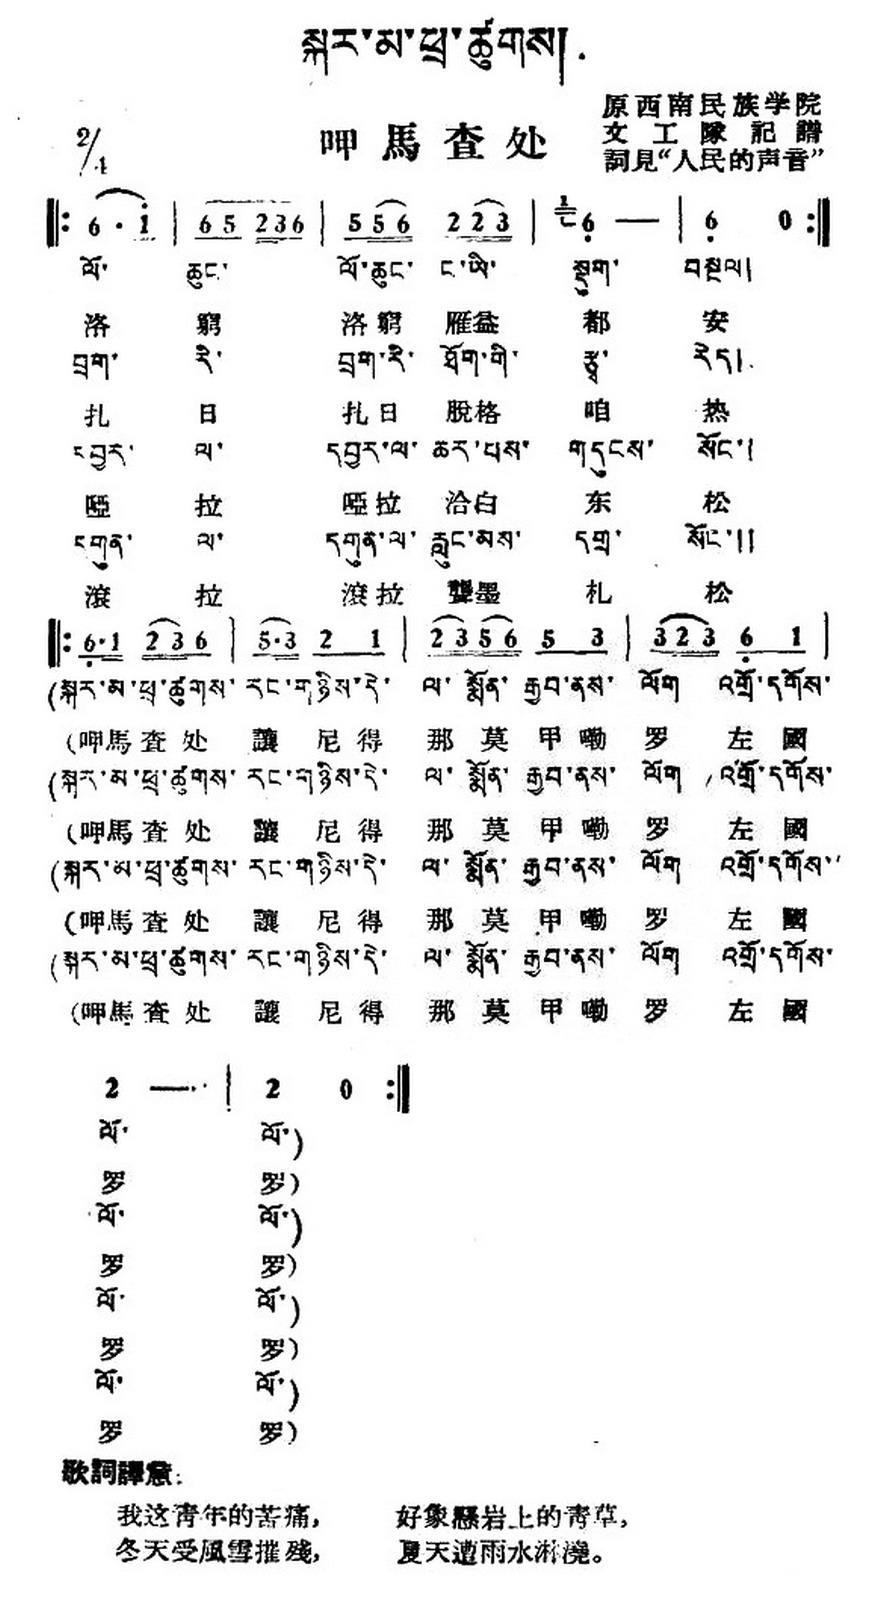 སྐར་མ་ཕྲ་ཚུགས།
呷馬査处
原西南民族学院
文工隊記譜
詞見“人民的声音”
2/4
‖: 6 · i | 6 5 2 3 6 | 5 5 6 2 2 3 | 6 — | 6 0 :‖
ལོ་ ཆུང་ ལོ་ཆུང་ ང་ཡི་ སྡུག་ བསྔལ།
洛 窮 洛 窮 雁益 都 安
བྲག་ རི་ བྲག་རི་ ཐོག་གི་ རྩྭ་ རེད།
扎 日 扎日 脫格 咱 热
དབྱར་ ལ་ དབྱར་ལ་ ཆར་པས་ གདུངས་ སོང་།
啞 拉 啞拉 洽白 东 松
དགུན་ ལ་ དགུན་ལ་ རླུང་མས་ དགྲ་ སོང་།།
滾 拉 滾拉 龔墨 札 松
‖: 6 · 1 2 3 6 | 5 · 3 2 1 | 2 3 5 6 5 3 | 3 2 3 6 1 |
(སྐར་མ་ཕྲ་ཚུགས་ རང་གཉིས་དེ་ ལ་ སྨོན་ རྒྱབ་ནས་ ལོག འགྲོ་དགོས་
(呷馬査处 讓 尼得 那 莫 甲嘞 罗 左 國
(སྐར་མ་ཕྲ་ཚུགས་ རང་གཉིས་དེ་ ལ་ སྨོན་ རྒྱབ་ནས་ ལོག འགྲོ་དགོས་
(呷馬査处 讓 尼得 那 莫 甲嘞 罗 左 國
(སྐར་མ་ཕྲ་ཚུགས་ རང་གཉིས་དེ་ ལ་ སྨོན་ རྒྱབ་ནས་ ལོག འགྲོ་དགོས་
(呷馬査处 讓 尼得 那 莫 甲嘞 罗 左 國
(སྐར་མ་ཕྲ་ཚུགས་ རང་གཉིས་དེ་ ལ་ སྨོན་ རྒྱབ་ནས་ ལོག འགྲོ་དགོས་
(呷馬査处 讓 尼得 那 莫 甲嘞 罗 左 國
2 — | 2 0 :‖
ལོ་ ལོ་)
罗 罗)
ལོ་ ལོ་)
罗 罗)
ལོ་ ལོ་)
罗 罗)
ལོ་ ལོ་)
罗 罗)
歌詞譯意:
我这青年的苦痛, 好象懸岩上的青草,
冬天受風雪摧殘, 夏天遭雨水淋澆。